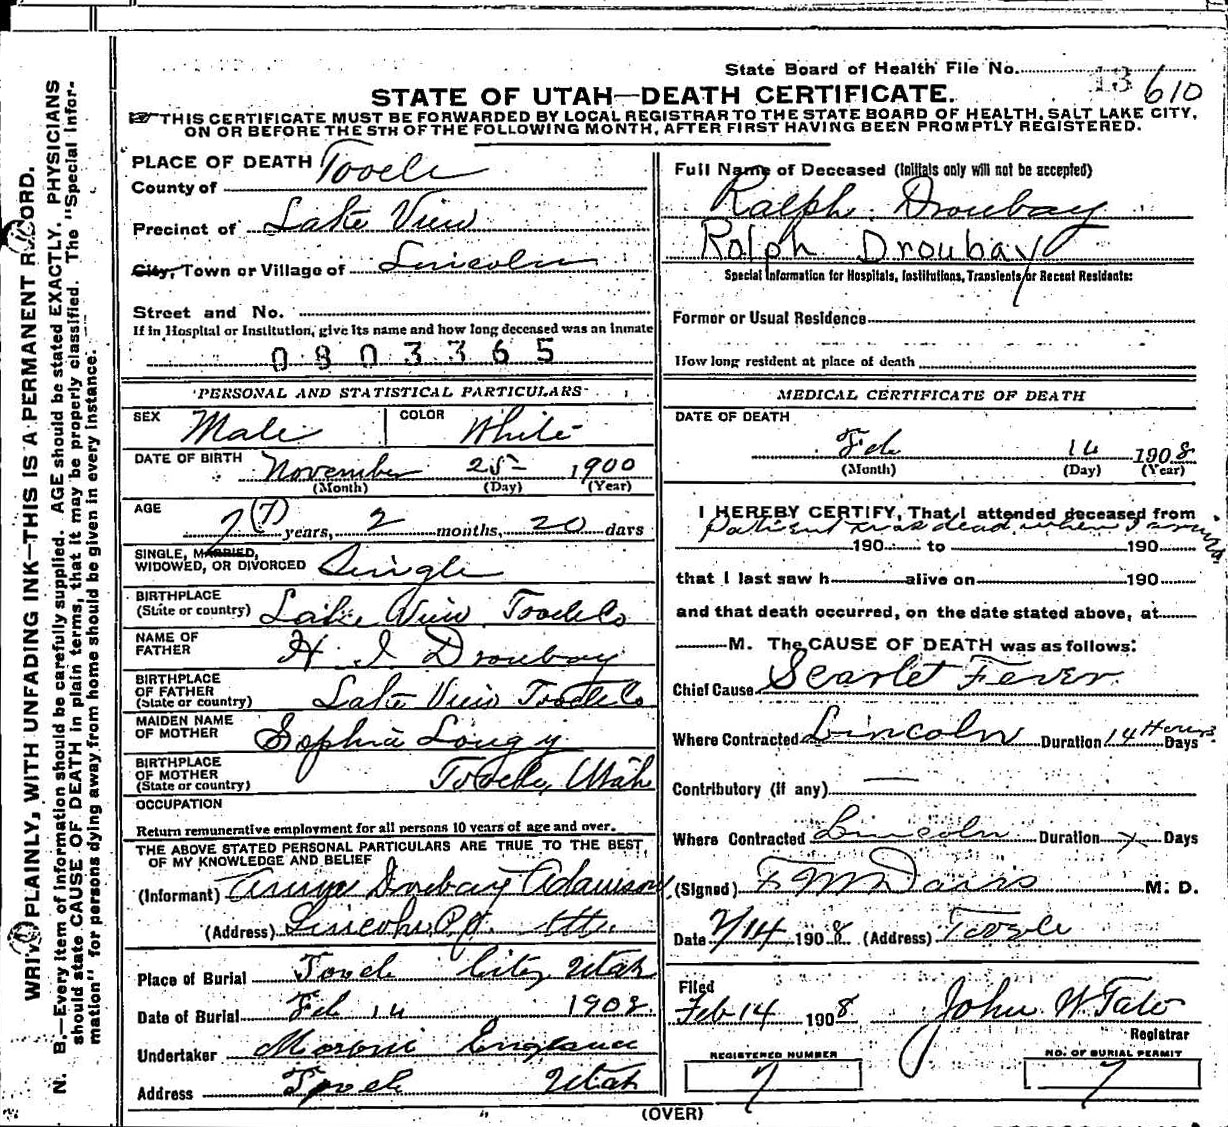 State Board of Health File No. 13 610
STATE OF UTAH—DEATH CERTIFICATE.
THIS CERTIFICATE MUST BE FORWARDED BY LOCAL REGISTRAR TO THE STATE BOARD OF HEALTH, SALT LAKE CITY,
ON OR BEFORE THE 5TH OF THE FOLLOWING MONTH, AFTER FIRST HAVING BEEN PROMPTLY REGISTERED.
WRITE PLAINLY, WITH UNFADING INK—THIS IS A PERMANENT RECORD.
N. B.—Every item of information should be carefully supplied. AGE should be stated EXACTLY. PHYSICIANS
should state CAUSE OF DEATH in plain terms, that it may be properly classified. The "Special Infor-
mation" for persons dying away from home should be given in every instance.
PLACE OF DEATH
County of Tooele
Precinct of Lake View
City, Town or Village of Lincoln
Street and No.
If in Hospital or Institution, give its name and how long deceased was an inmate
0803365
PERSONAL AND STATISTICAL PARTICULARS
SEX Male COLOR White
DATE OF BIRTH November 25 1900
(Month) (Day) (Year)
AGE 7 (7) years, 2 months, 20 days
SINGLE, MARRIED,
WIDOWED, OR DIVORCED Single
BIRTHPLACE
(State or country) Lake View Tooele Co
NAME OF
FATHER H. J. Droubay
BIRTHPLACE
OF FATHER
(State or country) Lake View Tooele Co
MAIDEN NAME
OF MOTHER Sophia Lougy
BIRTHPLACE
OF MOTHER
(State or country) Tooele, Utah
OCCUPATION
Return remunerative employment for all persons 10 years of age and over.
THE ABOVE STATED PERSONAL PARTICULARS ARE TRUE TO THE BEST
OF MY KNOWLEDGE AND BELIEF
(Informant) Droubay Adamson
(Address) Lincoln P.O. Ut.
Place of Burial Tooele City Utah
Date of Burial Feb 14 1908.
Undertaker Moroni England
Address Tooele Utah
Full Name of Deceased (Initials only will not be accepted)
Ralph Droubay
Ralph Droubay
Special Information for Hospitals, Institutions, Transients or Recent Residents:
Former or Usual Residence
How long resident at place of death
MEDICAL CERTIFICATE OF DEATH
DATE OF DEATH
Feb 14 1908
(Month) (Day) (Year)
I HEREBY CERTIFY, That I attended deceased from
patient was dead when I arrived
190 to 190
that I last saw h alive on 190
and that death occurred, on the date stated above, at
M. The CAUSE OF DEATH was as follows:
Chief Cause Scarlet Fever
Where Contracted Lincoln Duration 14 Hours Days
Contributory (if any) —
Where Contracted Lincoln Duration Days
(Signed) F M Davis M. D.
Date 2/14 1908 (Address) Tooele
Filed
Feb 14 1908 John W Tate
Registrar
REGISTERED NUMBER NO. OF BURIAL PERMIT
7 7
(OVER)